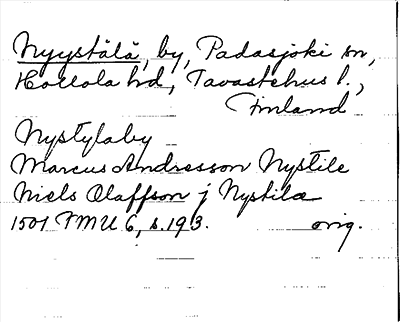 Nyystälä, by, Padasjoki sn,
Hollola hd, Tavastehus l.,
Finland
Nystylaby
Marcus Andresson Nystile
Niels Olaffson j Nystila
1501 FMU 6, s. 193. orig.